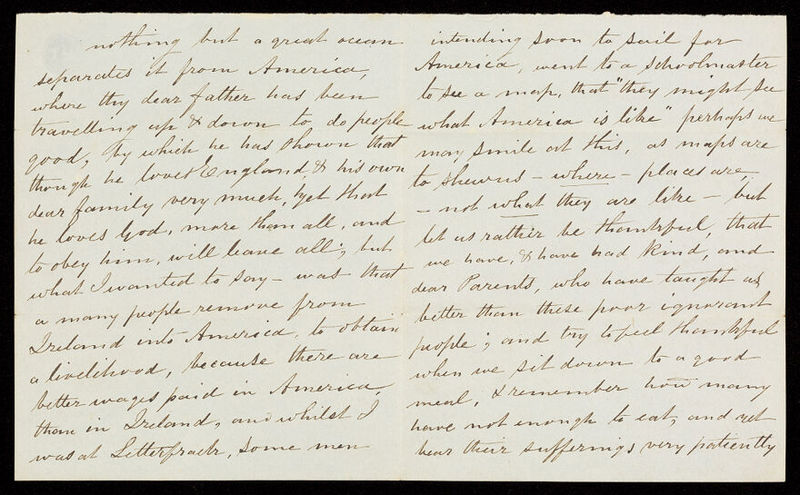 nothing but a great ocean
separates it from America,
where thy dear father has been
travelling up & down to do people
good, by which he has shown that
though he loves England, & his own
dear family very much, yet that
he loves God, more than all, and
to obey him, will leave all; but
what I wanted to say - was that
a many people remove from
Ireland into America, to obtain
a livelihood, because there are
better wages paid in America,
than in Ireland, and whilst I
was at Letterfrack, some men
intending soon to sail for
America, went to a schoolmaster
to see a map, that "they might see
what America is like" perhaps we
may smile at this, as maps are
to shew us - where - places are -
- not what they are like - but
let us rather be thankful, that
we have, & have had kind, and
dear Parents, who have taught us
better than these poor ignorant
people; and try to feel thankful
when we sit down to a good
meal, & remember how many
have not enough to eat, and yet
bear their sufferings very patiently